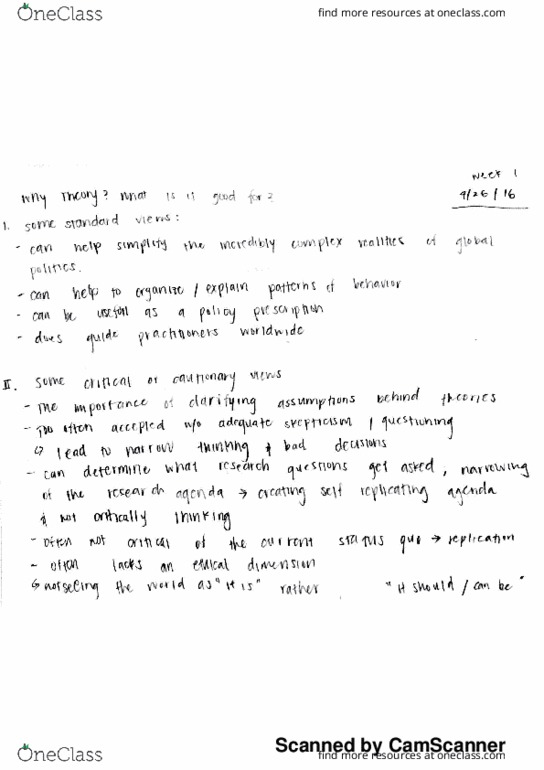 OneClass
find more resources at oneclass.com
week 1
4/26/16
Why Theory? What is it good for?
I. some standard views:
- can help simplify the incredibly complex realities of global
politics.
- can help to organize / explain patterns of behavior
- can be useful as a policy prescription
- does guide practitioners worldwide
II. some critical or cautionary views
- The importance of clarifying assumptions behind theories
- Too often accepted w/o adequate skepticism / questioning
↳ lead to narrow thinking & bad decisions
- can determine what research questions get asked, narrowing
of the research agenda → creating self replicating agenda
& not critically thinking
- often not critical of the current status quo → replication
- often lacks an ethical dimension
↳ not seeing the world as "it is" rather "it should / can be"
Scanned by CamScanner
OneClass
find more resources at oneclass.com